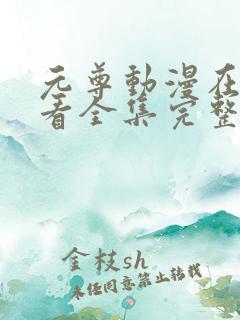 元尊動漫在
看全集完整
金枝sh
未经同意禁止转载